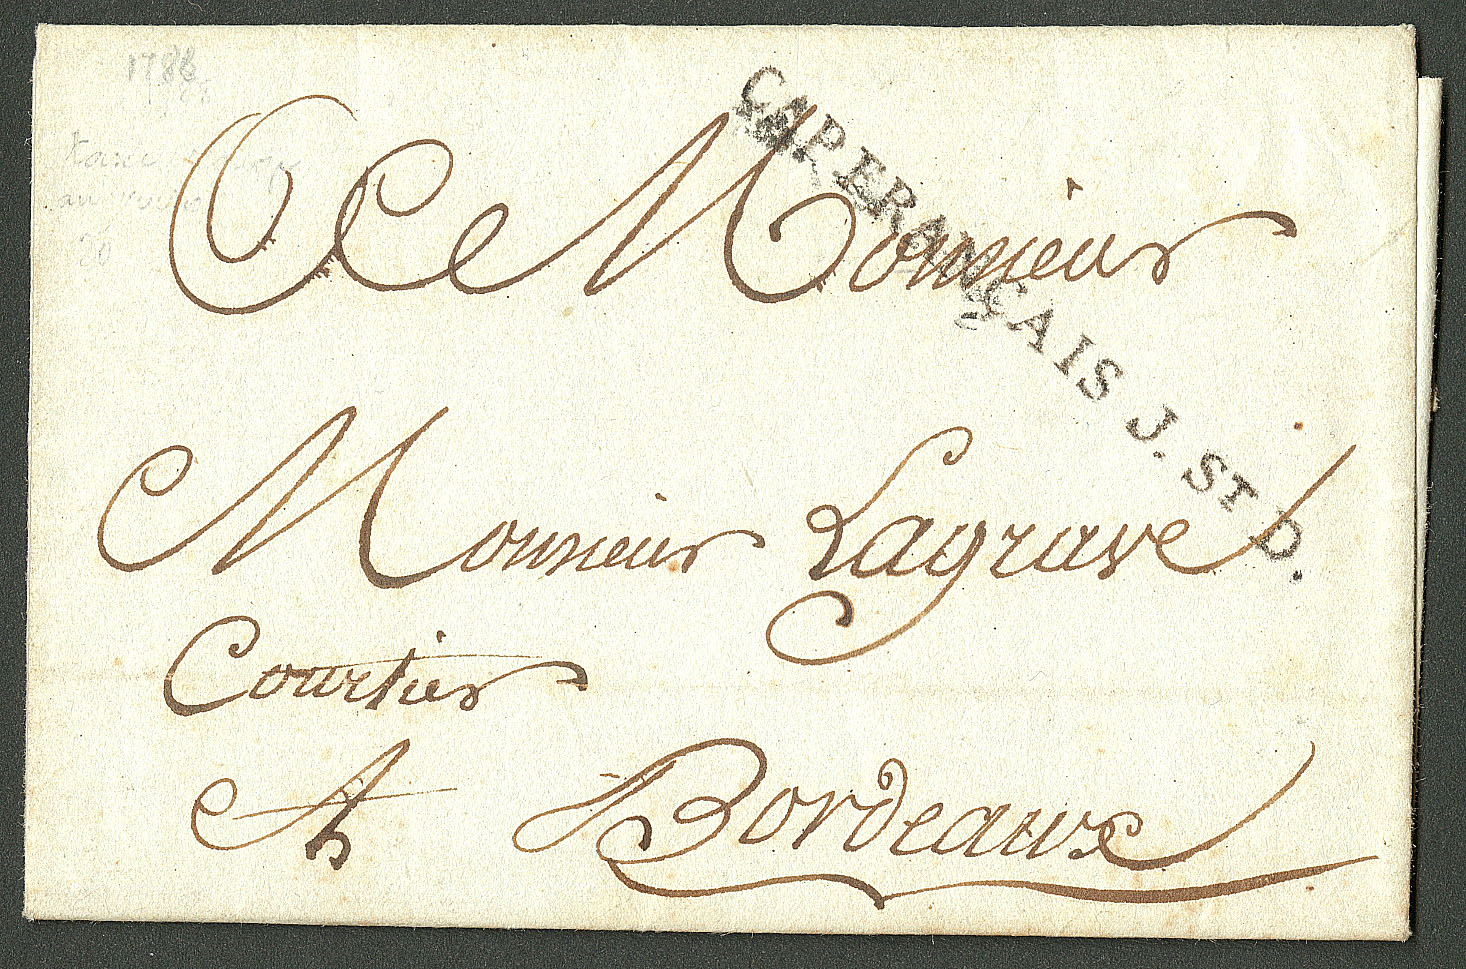 1786
CAP FRANÇAIS J. ST D.
A Monsieur
Monsieur Lagrave
Courtier
A Bordeaux